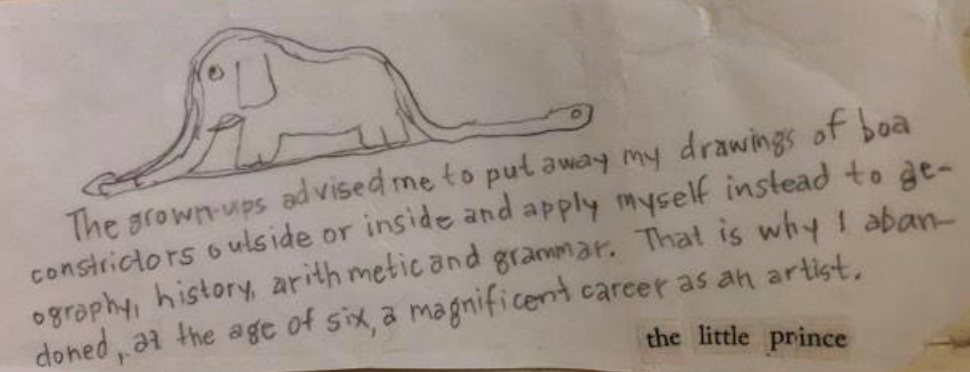 The grown-ups advised me to put away my drawings of boa
constrictors outside or inside and apply myself instead to ge-
ography, history, arithmetic and grammar. That is why I aban-
doned, at the age of six, a magnificent career as an artist.
the little prince